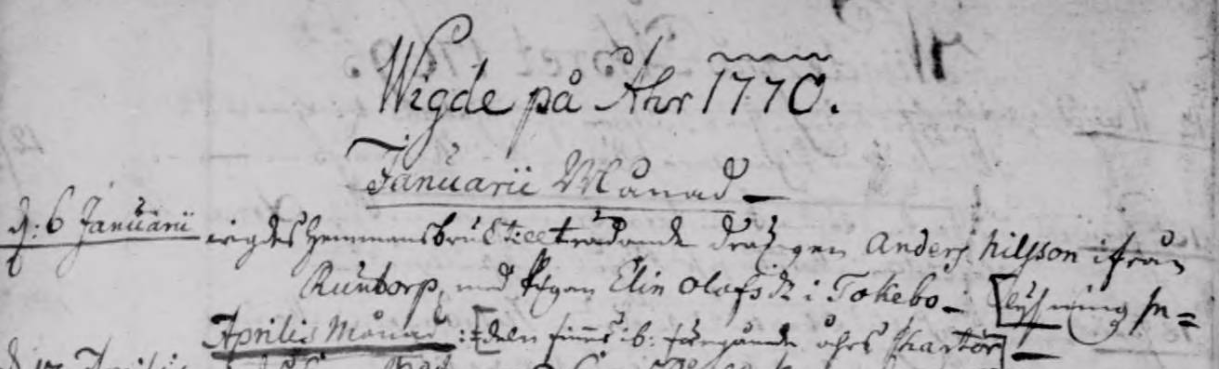 Wigde på Åhr 1770.
Januarii Månad
d: 6 Januarii wigdes Hemmansbruk tilträdande drängen Anders Nilsson ifrån
Runtorp, med Pigan Elin Olofsdr i Tokebo. [Lysnung
Aprilis Månad: finnes ib: föregående åhrs